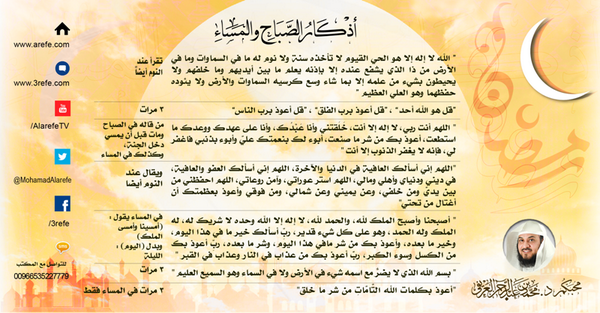 أذكار الصباح والمساء
" الله لا إله إلا هو الحي القيوم لا تأخذه سنة ولا نوم له ما في السماوات وما في
الأرض من ذا الذي يشفع عنده إلا بإذنه يعلم ما بين أيديهم وما خلفهم ولا
يحيطون بشيء من علمه إلا بما شاء وسع كرسيه السماوات والأرض ولا يئوده
حفظهما وهو العلي العظيم "
تقرأ عند
النوم أيضاً
"قل هو الله أحد" ، "قل أعوذ برب الفلق" ، "قل أعوذ برب الناس"
٣ مرات
" اللهم أنت ربي، لا إله إلا أنت، خلقتني وأنا عبدك، وأنا على عهدك ووعدك ما
استطعت، أعوذ بك من شر ما صنعت، أبوء لك بنعمتك علي وأبوء بذنبي فاغفر
لي، فإنه لا يغفر الذنوب إلا أنت "
من قاله في الصباح
ومات قبل أن يمسي
دخل الجنة،
وكذلك في المساء
"اللهم إني أسألك العافية في الدنيا والآخرة، اللهم إني أسألك العفو والعافية،
في ديني ودنياي وأهلي ومالي، اللهم استر عوراتي، وآمن روعاتي، اللهم احفظني من
بين يدي ومن خلفي، وعن يميني وعن شمالي، ومن فوقي وأعوذ بعظمتك أن
أغتال من تحتي"
ويقال عند
النوم أيضا
" أصبحنا وأصبح الملك لله، والحمد لله، لا إله إلا الله وحده لا شريك له، له
الملك وله الحمد، وهو على كل شيء قدير، رب أسألك خير ما في هذا اليوم،
وخير ما بعده، وأعوذ بك من شر ما في هذا اليوم، وشر ما بعده، رب أعوذ بك
من الكسل وسوء الكبر، رب أعوذ بك من عذاب في النار وعذاب في القبر "
في المساء يقول :
(أمسينا وأمسى
الملك)
ويبدل (اليوم) :
الليلة
" بسم الله الذي لا يضر مع اسمه شيء في الأرض ولا في السماء وهو السميع العليم "
٣ مرات
"أعوذ بكلمات الله التامات من شر ما خلق"
٣ مرات في المساء فقط
www.arefe.com
www.3refe.com
/AlarefeTV
@MohamadAlarefe
/3refe
للتواصل مع المكتب
00966535227779
رمضان
محبكم د. محمد بن عبدالرحمن العريفي